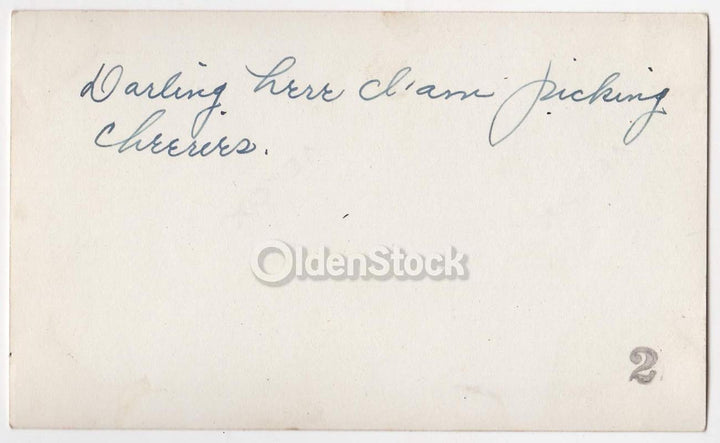 Darling here I'am picking
cheeries.
OldenStock
2